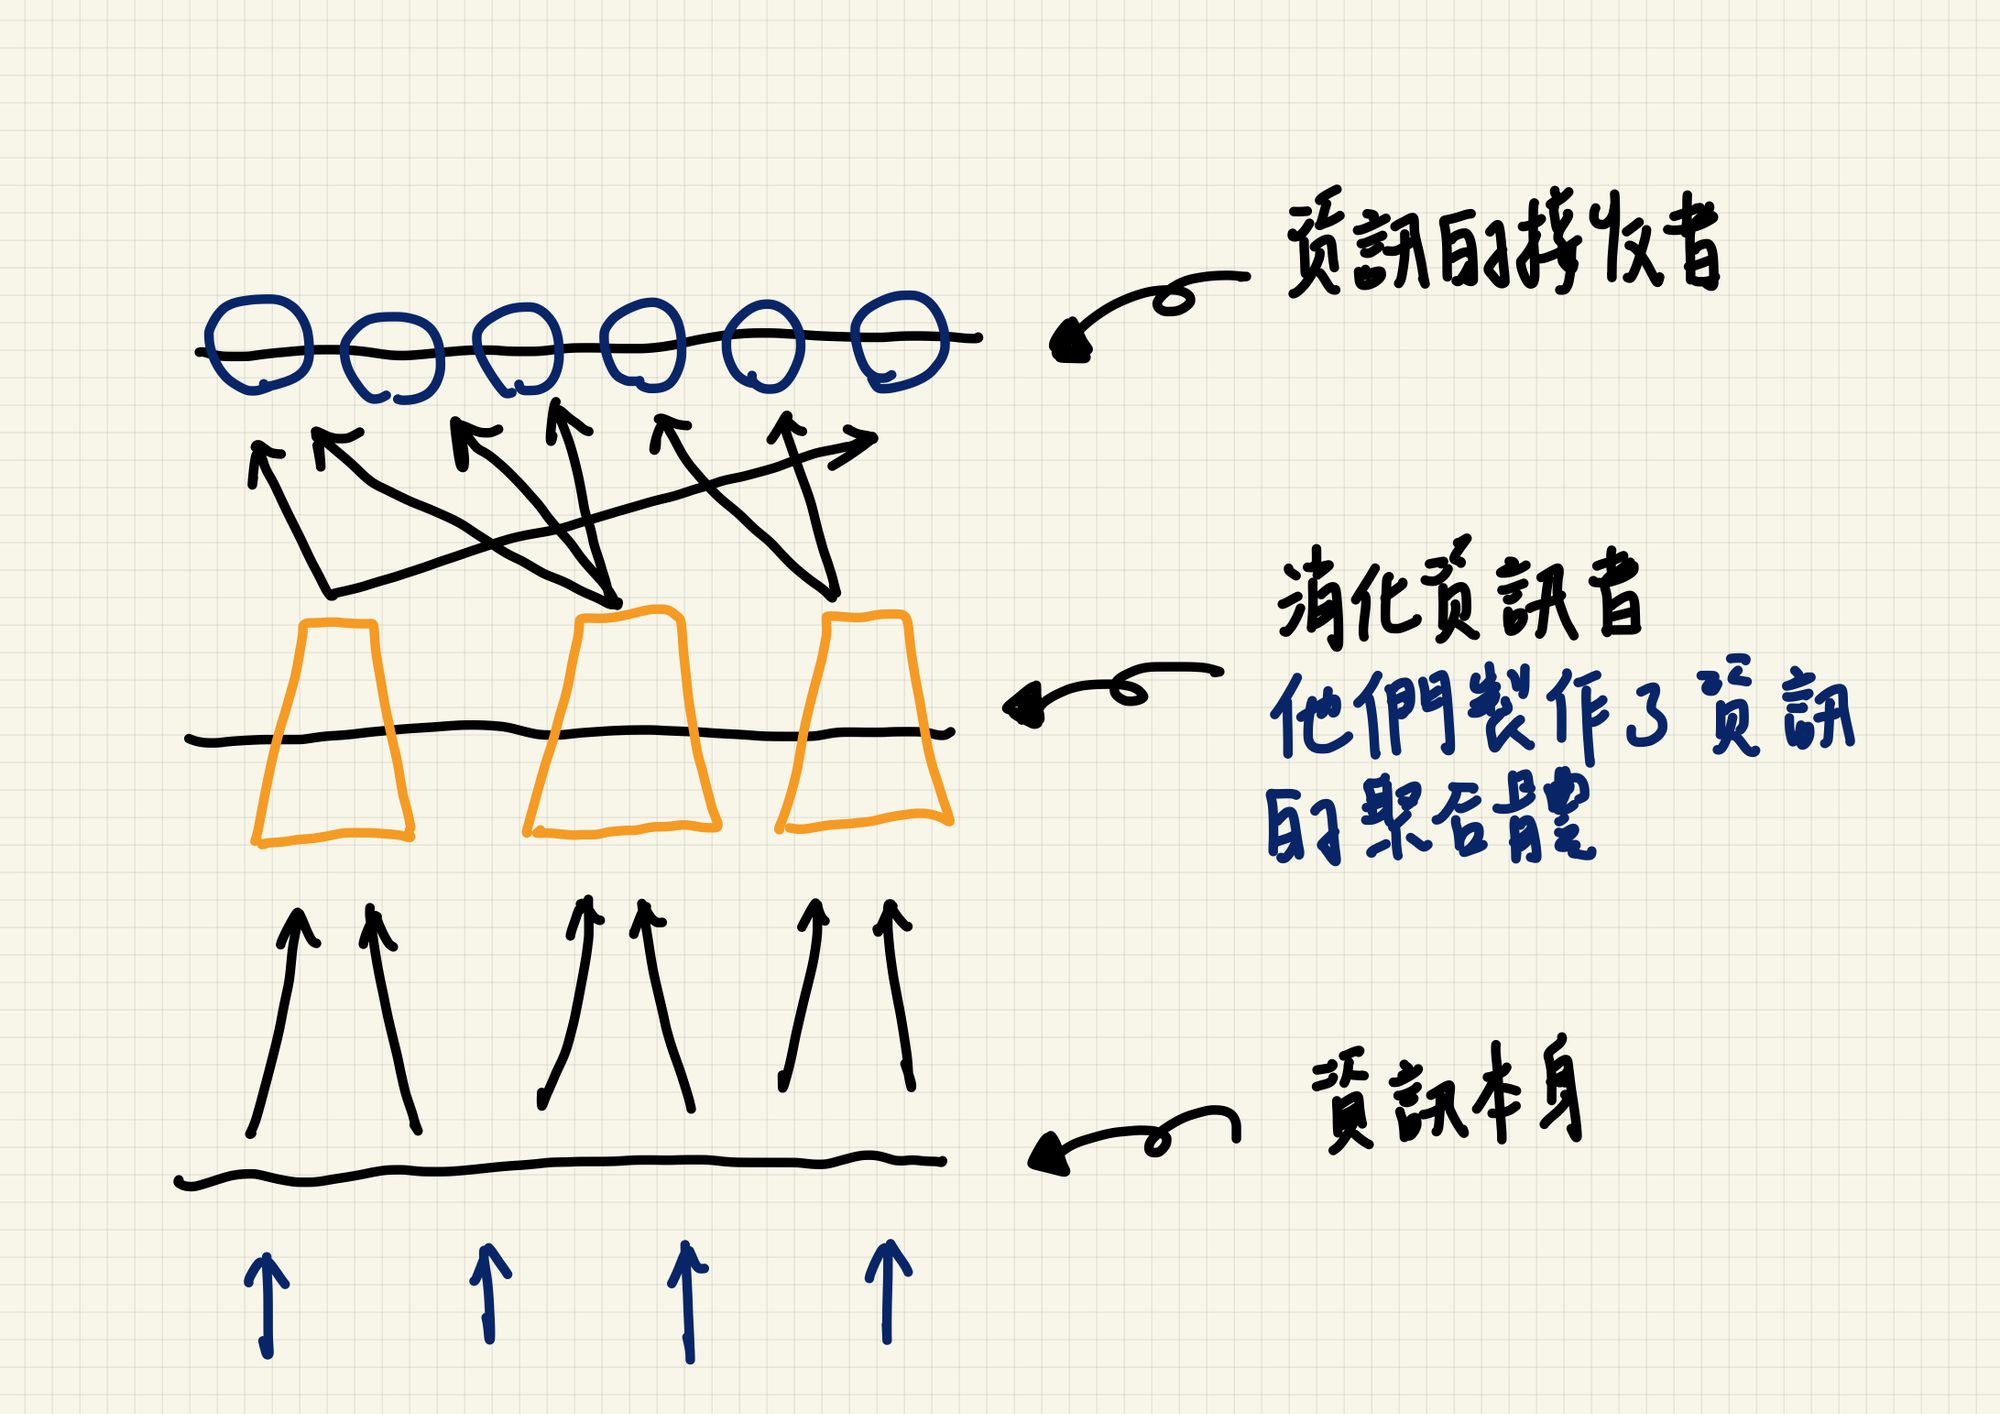 資訊的接收者
消化資訊者
他們製作了資訊
的聚合體
資訊本身